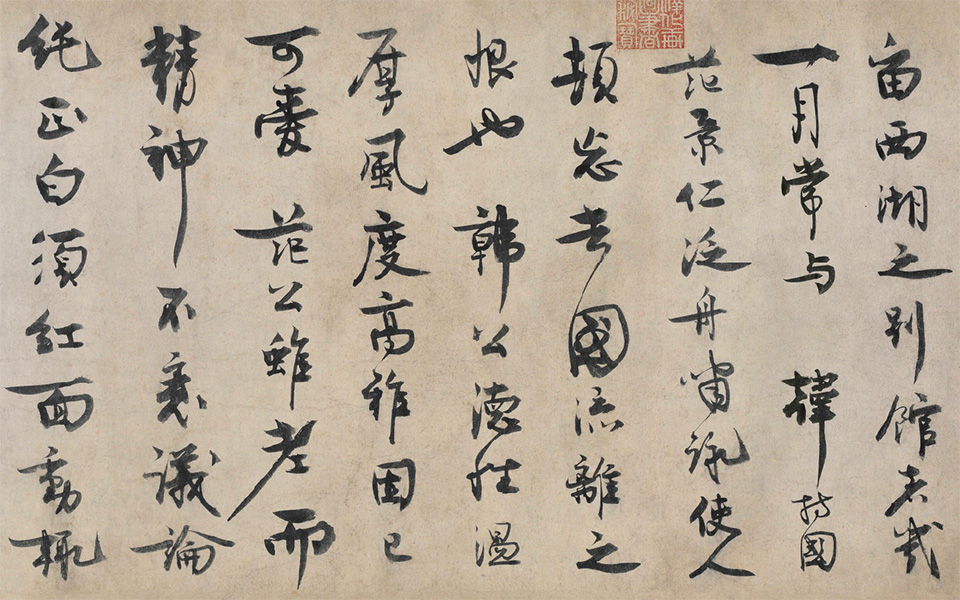 留西湖之别館者幾
一月常与 韓持國
范景仁泛舟嘯詠使人
頓忘去國流離之
恨也 韓公德性温
厚風度高雅固已
可愛 范公雖老而
精神不衰議論
純正白須紅面動輒